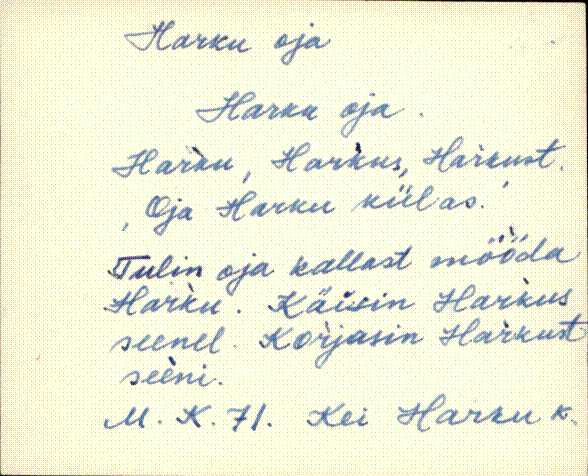 Harku oja
Harku oja.
Har̀ku, Har̀kus, Har̀kust.
, Oja Harku külas.'
Tulin oja kallast mööda
Har̀ku. Käisin Har̀kus
seenel. Korjasin Har̀kust
seèni.
M. K. 71. Kei Harku k.